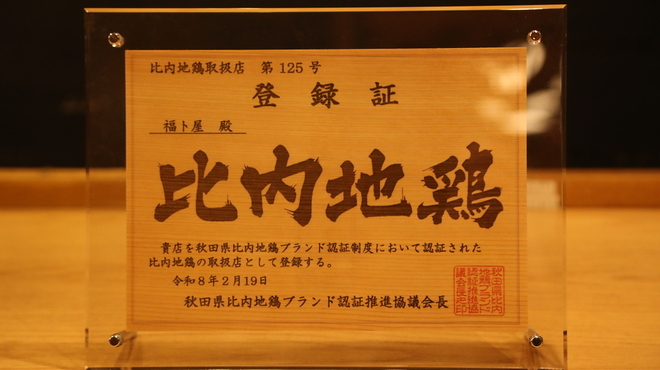 比内地鶏取扱店 第125号
登録証
福ト屋 殿
比内地鶏
貴店を秋田県比内地鶏ブランド認証制度において認証された
比内地鶏の取扱店として登録する。
令和8年2月19日
秋田県比内地鶏ブランド認証推進協議会長
秋田県比内
地鶏ブランド
認証推進協
議会長之印